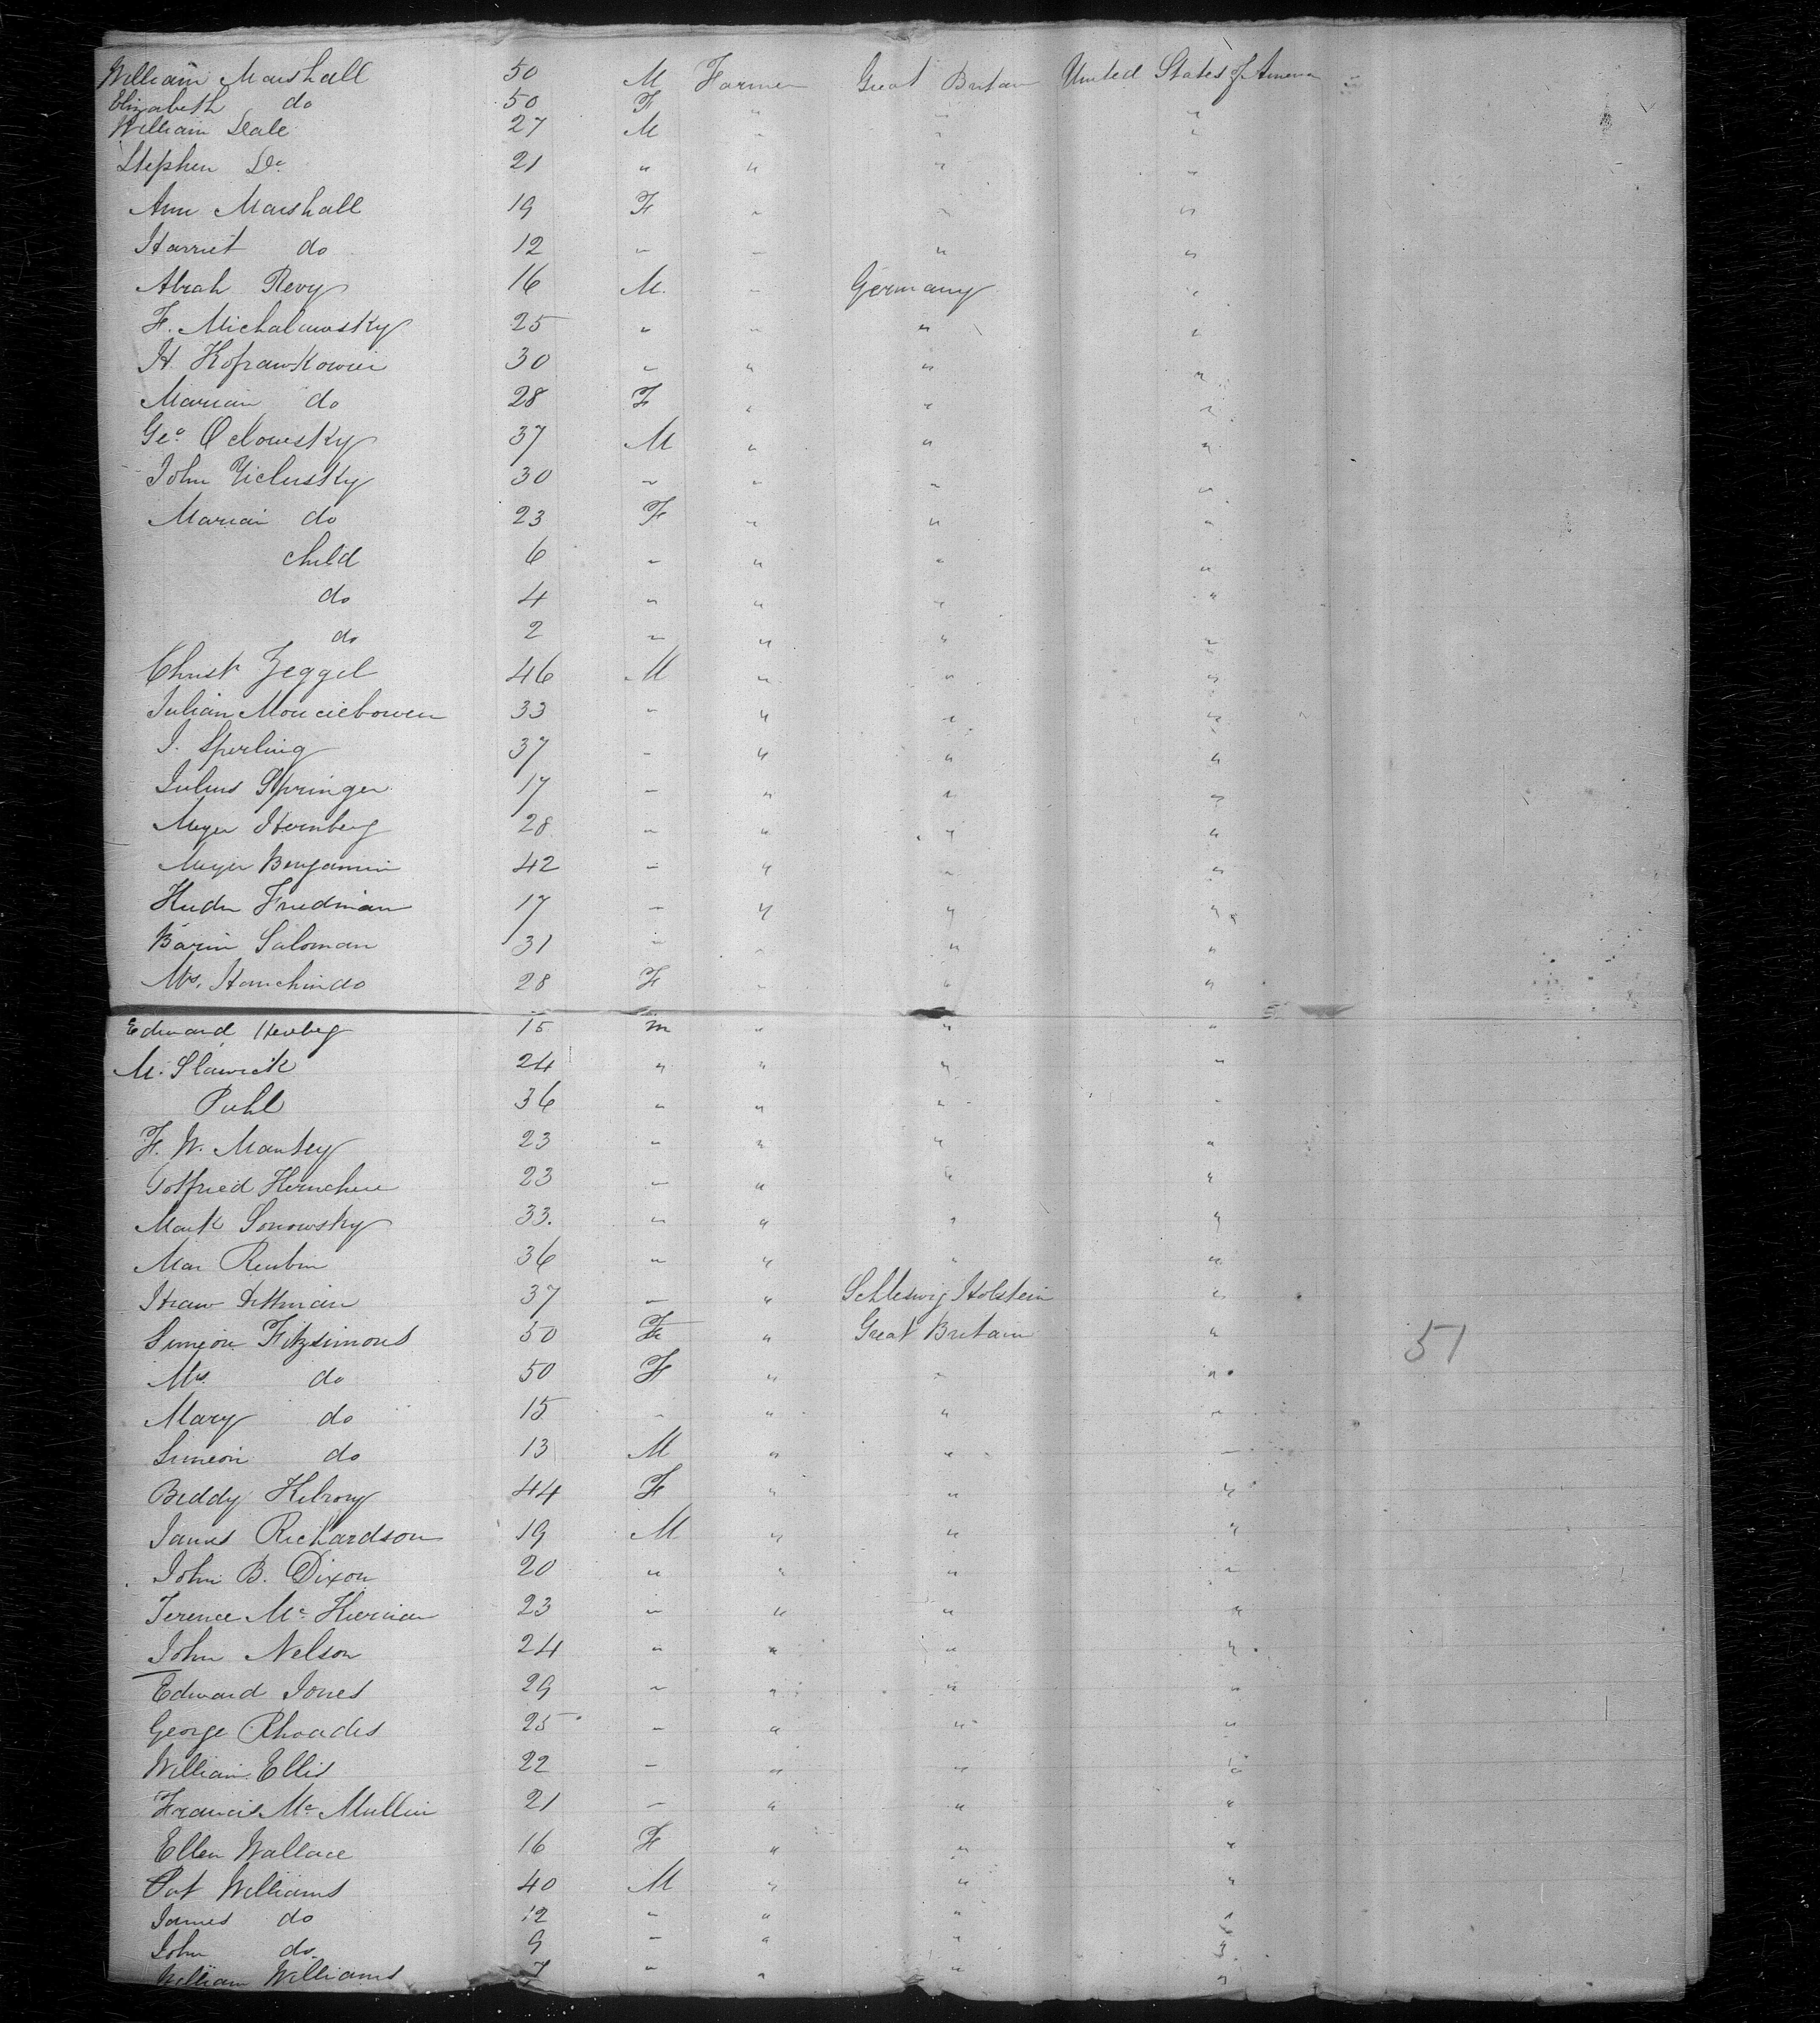 William Marshall 50 M Farmer Great Britain United States of America
Elizabeth do 50 F " " "
William Seale 27 M " " "
Stephen Do 21 " " " "
Ann Marshall 19 F " " "
Harriet do 12 " " " "
Abrah Revy 16 M. " Germany "
F. Michalawsky 25 " " " "
H. Koprawkowier 30 " " " "
Marian do 28 F " " "
Geo. Oclowsky 37 M " " "
John Yiclusky 30 " " " "
Marian do 23 F " " "
child 6 " " " "
do 4 " " " "
do 2 " " " "
Christ Zeggel 46 M " " "
Julian 33 " " " "
I. Sperling 37 " " " "
Julius Springer 17 " " " "
Meyer Sternberg 28 " " " "
Meyer Benjamin 42 " " " "
Friedman 17 " " " "
Barin Saloman 31 " " " "
Mrs. do 28 F " " "
Edward Herberg 15 m " " "
M. Slawick 24 " " " "
Puhl 36 " " " "
F. W. Mantey 23 " " " "
Gotfried 23 " " " "
Mark Sonowsky 33. " " " "
Reubin 36 " " " "
Dittman 37 " " Schleswig Holstein "
Simeon Fitzsimons 50 F " Great Britain " 51
Mrs do 50 F " " "
Mary do 15 " " " "
Simeon do 13 M " " "
Biddy Kilrony 44 F " " "
James Richardson 19 M " " "
John B. Dixon 20 " " " "
Terence Mc Kiernan 23 " " " "
John Nelson 24 " " " "
Edward Jones 29 " " " "
George Rhoades 25 " " " "
William Ellis 22 " " " "
Francis Mc Mullin 21 " " " "
Ellen Wallace 16 F " " "
Pat Williams 40 M " " "
James do 12 " " " "
John do 9 " " " "
William Williams 7 " " " "